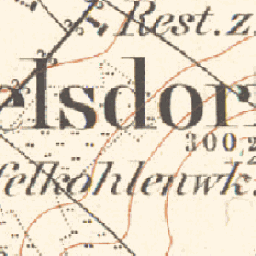 Rest. z.
elsdor
300,2
felkohlenwk.